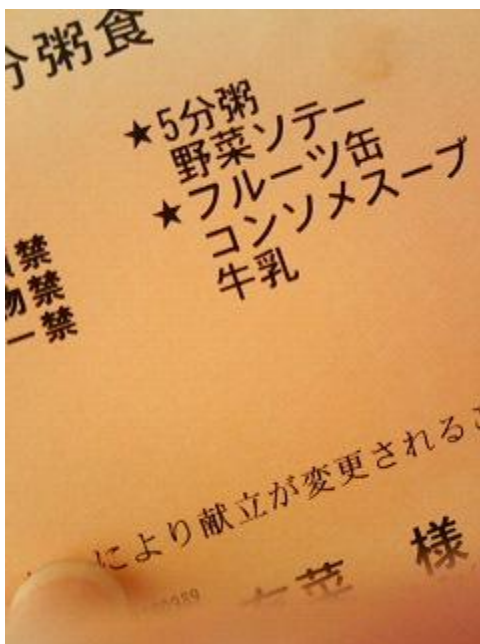 分粥食
★5分粥
野菜ソテー
★フルーツ缶
コンソメスープ
牛乳
禁
物禁
ー禁
により献立が変更されるこ
菜 様